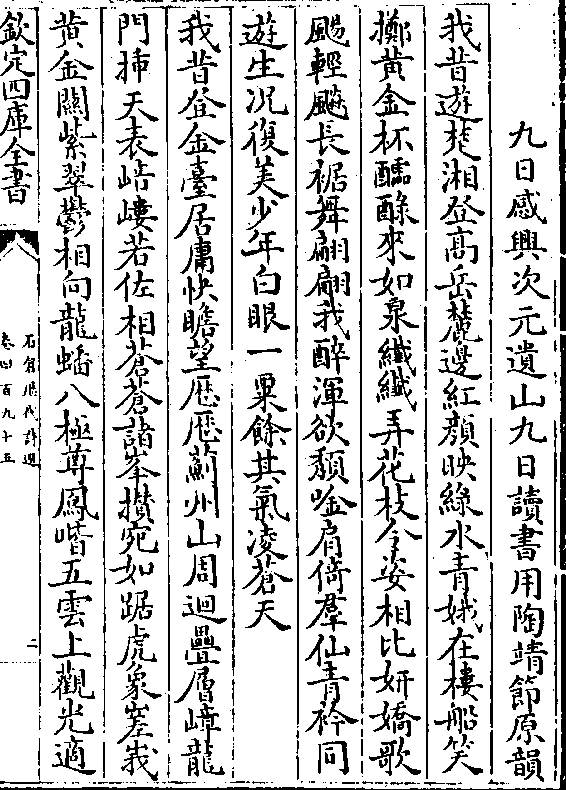 九日感興次元遺山九日讀書用陶靖節原韻
我昔遊楚湘登髙岳麓邊紅顔映緑水青娥在樓船笑
擲黄金杯醽醁來如泉纎纎弄花枝今姿相比妍嬌歌
颺輕飈長裾舞翩翩我醉渾欲頽唫肩倚羣仙青衿同
遊生况復美少年白眼一粟餘其氣凌蒼天
我昔登金臺居庸快瞻望歴歴薊州山周迴疊層嶂龍
門揷天表峿嶁若佐相蒼蒼諸峯攅宛如踞虎象嵳峩
黄金闗紫翠鬱相向龍蟠八極尊鳳喈五雲上觀光適
欽定四庫全書
石倉歴代詩選
卷四百九十五
二